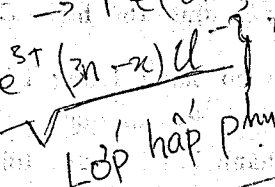 e³⁺ (3n-x) Cl⁻}
Lớp hấp phụ